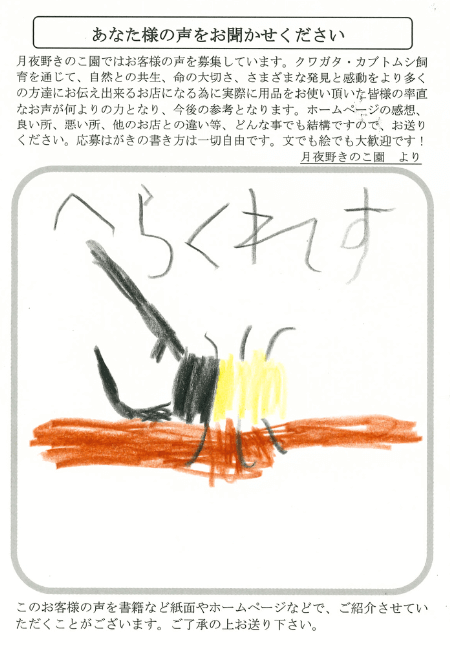 あなた様の声をお聞かせください
月夜野きのこ園ではお客様の声を募集しています。クワガタ・カブトムシ飼
育を通じて、自然との共生、命の大切さ、さまざまな発見と感動をより多く
の方達にお伝え出来るお店になる為に実際に用品をお使い頂いた皆様の率直
なお声が何よりの力となり、今後の参考となります。ホームページの感想、
良い所、悪い所、他のお店との違い等、どんな事でも結構ですので、お送り
ください。応募はがきの書き方は一切自由です。文でも絵でも大歓迎です！
月夜野きのこ園　より
へらくれす
このお客様の声を書籍など紙面やホームページなどで、ご紹介させてい
ただくことがございます。ご了承の上お送り下さい。